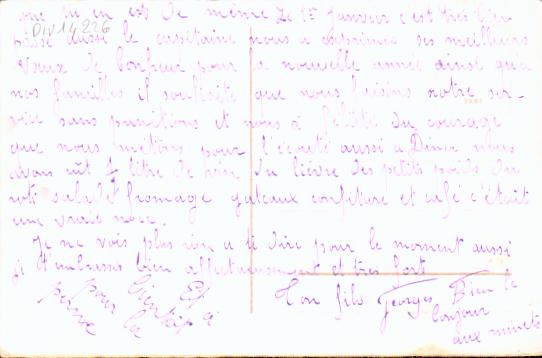 que tu en est de même Le 1er Janvier c'est très bien
passé aussi le capitaine nous a exprimée ses meilleurs
Div14226
vœux de bonheur pour la nouvelle année ainsi qu'a
nos familles il souhaite que nous faisons notre ser-
vice sans punitions et nous a félicité du courage
que nous mettons pour l'écouté aussi a Diner nous
avons eût 1 litre de vin du lièvre des petits poids du
roti salade fromage gateaux confiture et café c'était
une vraie noce.
Je ne vois plus rien a te dire pour le moment aussi
je t'embrasse bien affectueusement et très fort
Ton fils Georges Bien le
bonjour
aux minets
Et a
bientôt
pour la
perme